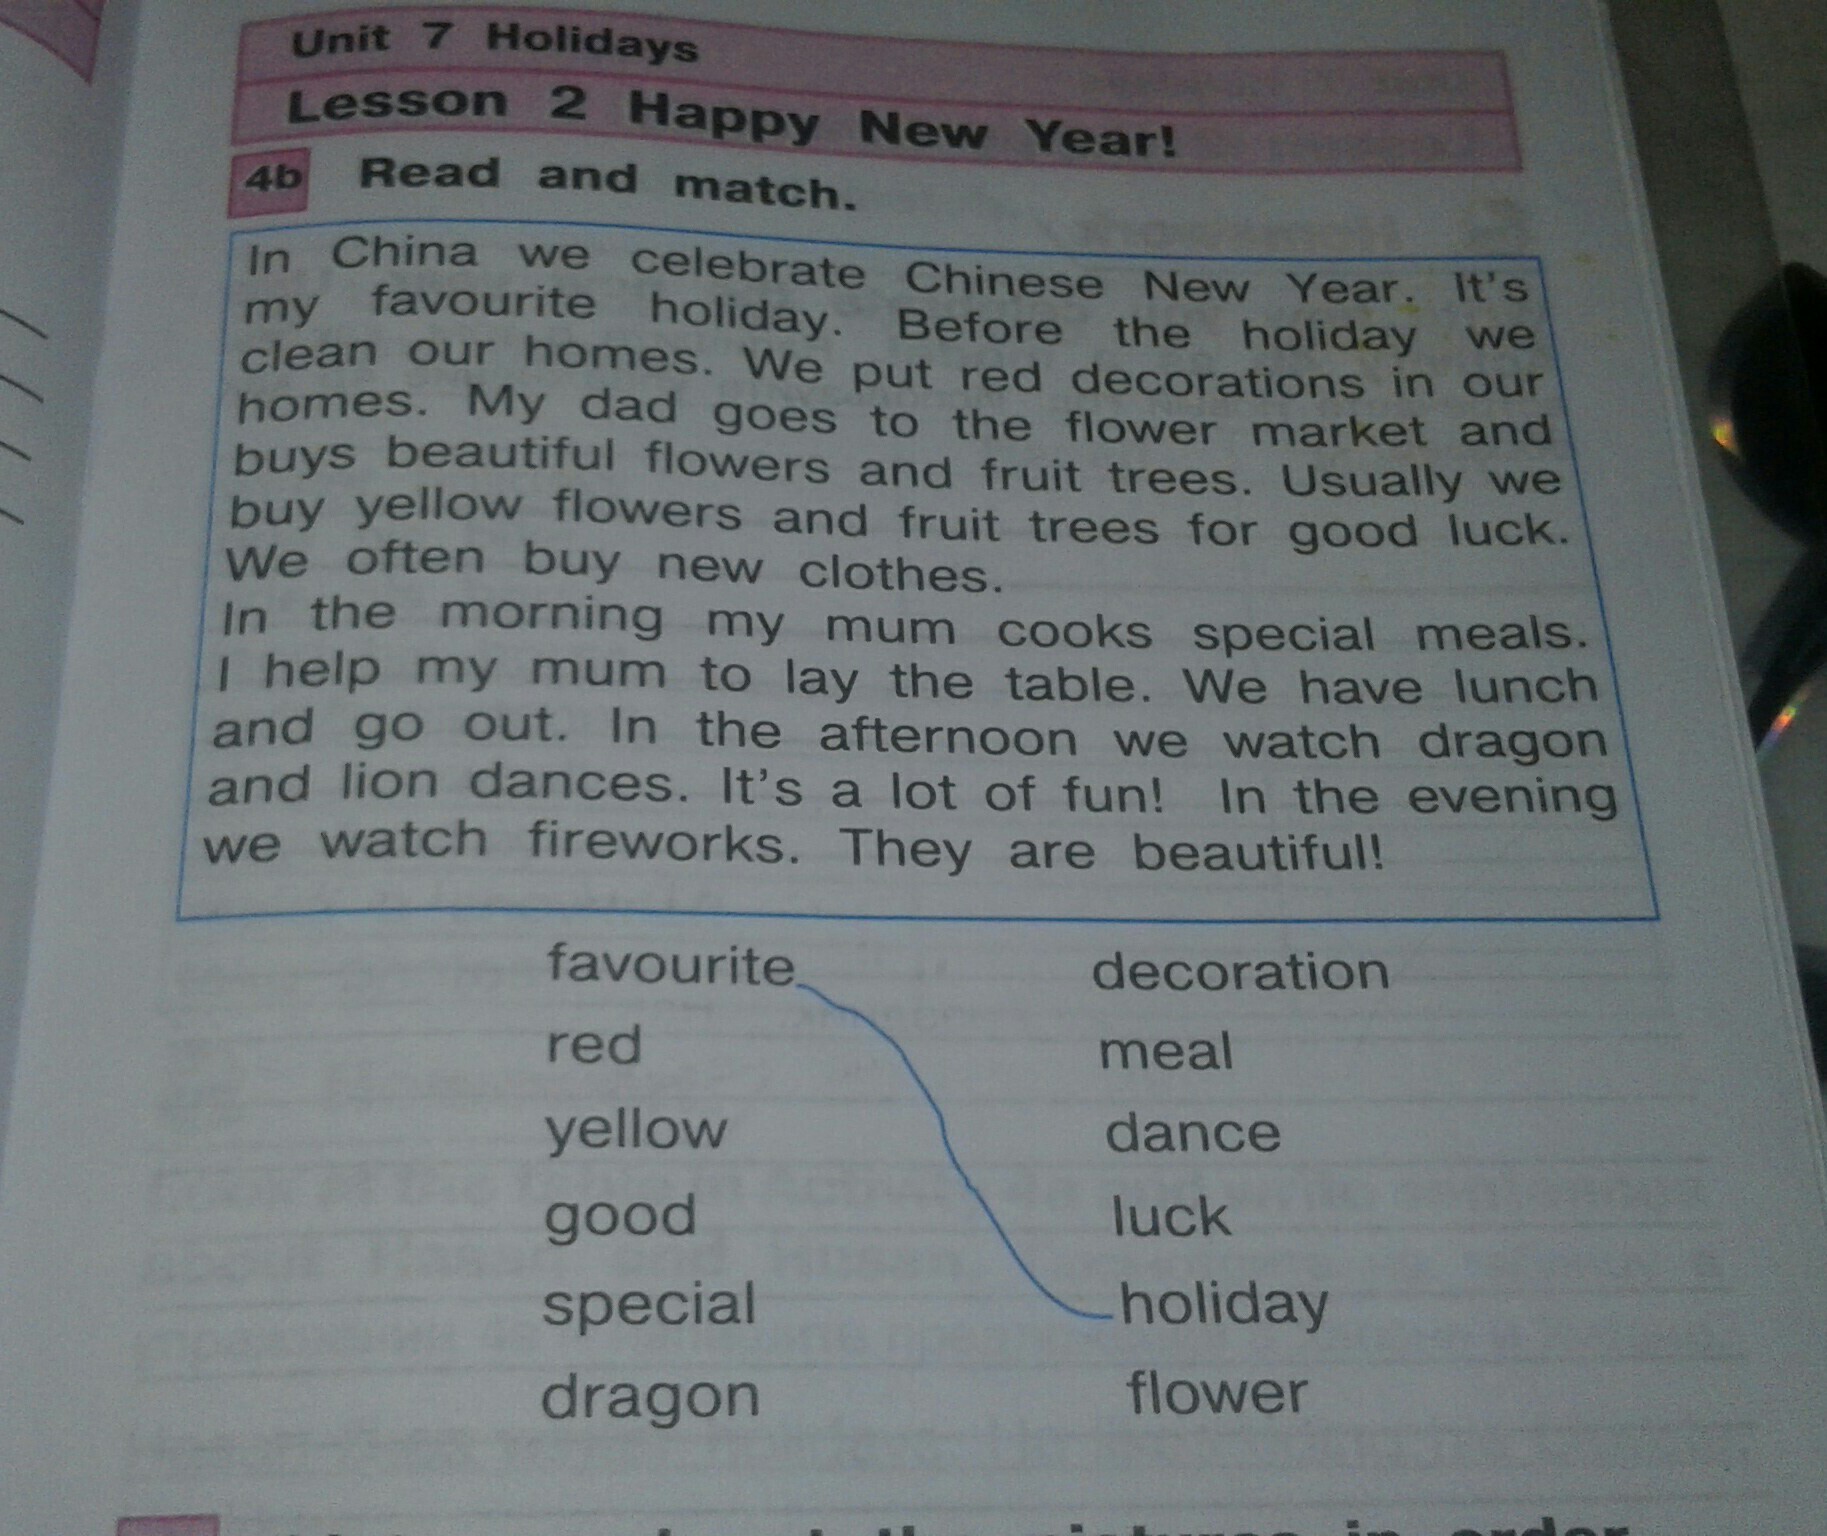 Unit 7 Holidays
Lesson 2 Happy New Year!
4b Read and match.
In China we celebrate Chinese New Year. It's
my favourite holiday. Before the holiday we
clean our homes. We put red decorations in our
homes. My dad goes to the flower market and
buys beautiful flowers and fruit trees. Usually we
buy yellow flowers and fruit trees for good luck.
We often buy new clothes.
In the morning my mum cooks special meals.
I help my mum to lay the table. We have lunch
and go out. In the afternoon we watch dragon
and lion dances. It's a lot of fun! In the evening
we watch fireworks. They are beautiful!
favourite decoration
red meal
yellow dance
good luck
special holiday
dragon flower
in order